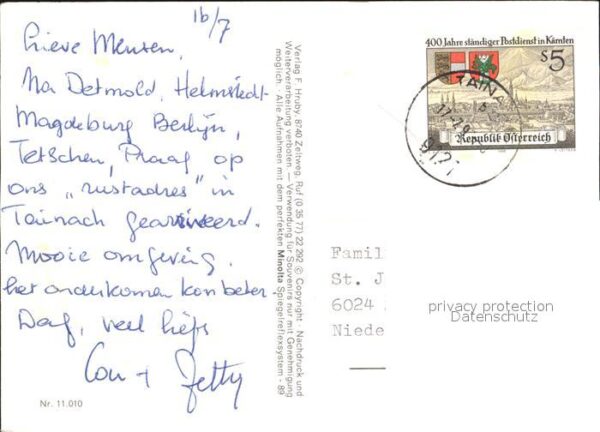 16/7
Lieve Mensen,
Na Detmold, Helmstedt
Magdeburg Berlijn,
Tetschen, Praag op
ons "rustadres" in
Tainach gearriveerd.
Mooie omgeving.
het onderkomen kon beter
Dag, veel liefs
Cou + Jetty
Nr. 11.010
Verlag F. Hruby, 8740 Zeltweg, Ruf (0 35 77) 22 292 © Copyright · Nachdruck und
Weiterverarbeitung verboten. — Verwendung für Souvenirs nur mit Genehmigung
möglich. · Alle Aufnahmen mit dem perfekten Minolta Spiegelreflexsystem - 89
400 Jahre ständiger Postdienst in Kärnten
S5
Republik Österreich
TAINA
9121
Famil
St. J
6024
Niede
privacy protection
Datenschutz